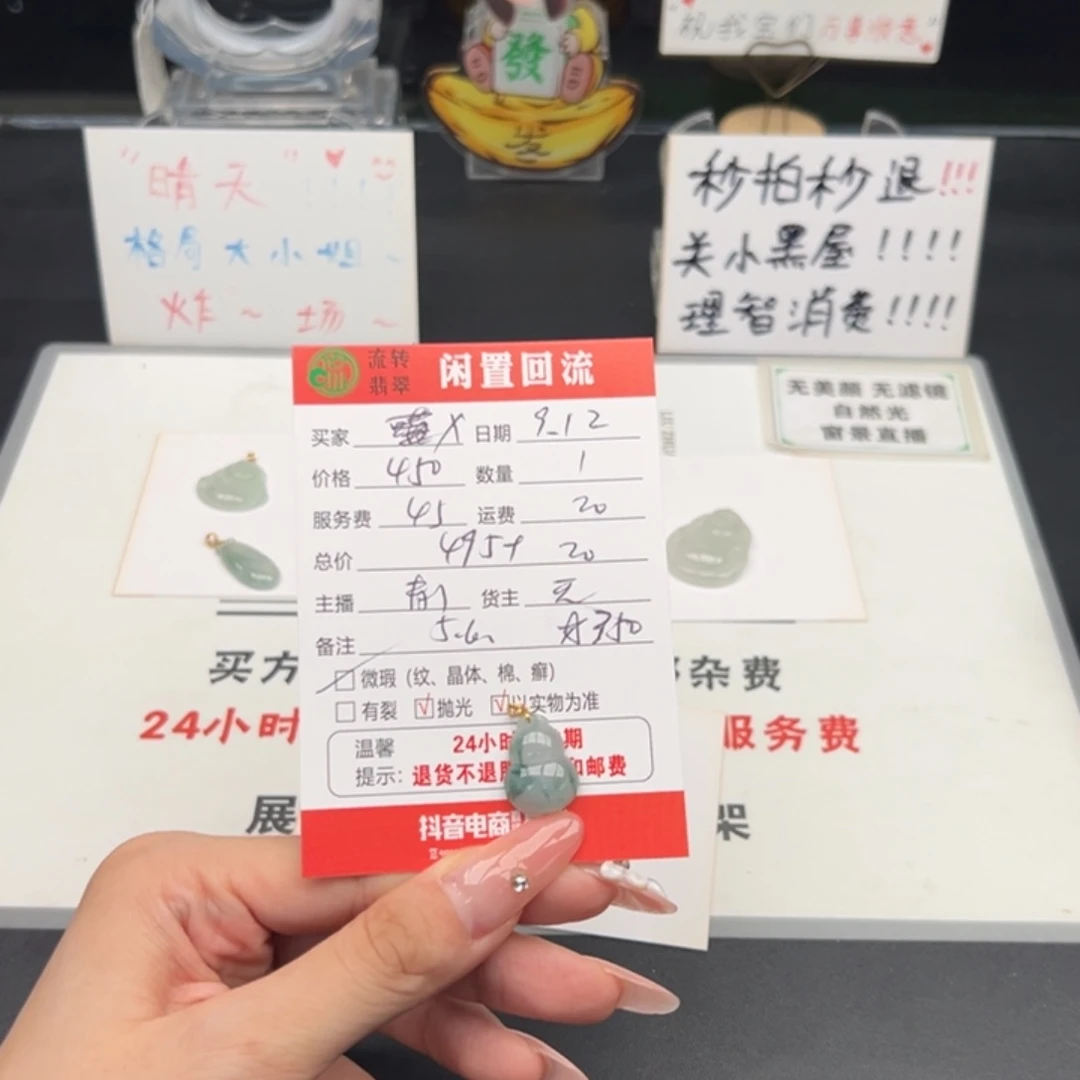 發
祝我宝们万事顺意
"晴天"
格局大小姐~
炸~场~
秒拍秒退!!!
关小黑屋!!!!
理智消费!!!!
无美颜 无滤镜
自然光
窗景直播
流转
翡翠
闲置回流
买家 日期 9.12
价格 450 数量 1
服务费 45 运费 20
总价 495+ 20
主播 货主
备注 350
微瑕 (纹、晶体、棉、癣)
有裂 √抛光 √以实物为准
温馨
提示:
24小时 期
退货不退 和邮费
抖音电商
买方 杂费
24小时 服务费
展 架